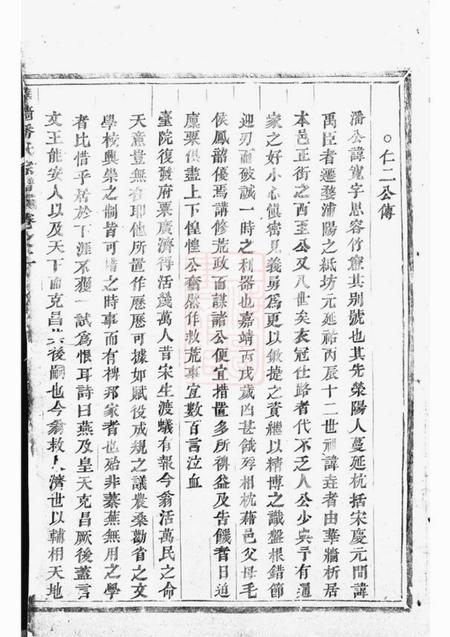 仁二公傳
潘公諱寬字思容竹窻其別號也其先滎陽人蔓延杭括宋慶元間諱
禹臣者遷婺浦陽之紙坊元延祐丙辰十二世祖諱垚者由華牆析居
本邑正街之西至公又八世矣衣冠仕路者代不乏人公少失孚有遹
家之好小心慎密見義勇為更以敏捷之資繼以精博之識盤根錯節
迎刃而破誠一時之利器也嘉靖丙戌歲凶甚餓殍相枕藉邑父母毛
侯鳳韶優焉講修荒政而謀諸公便宜措置多所裨益及告饑者日迫
廩粟俱盡上下惶惶公奮然作救荒事宜數百言泣血
臺院復發府粟廣濟得活幾萬人昔宋生渡蟻有報今翁活萬民之命
天意豈無在耶他所置作歷歷可據如賦役成規之議農桑勸省之文
學校興崇之制皆可堪之時事而有裨邦家者也殆非蓁蕪無用之學
者比惜乎居於下涯不獲一試為恨耳詩曰燕及皇天克昌厥後蓋言
文王能安人以及天下而克昌其後嗣也今翁救人濟世以輔相天地